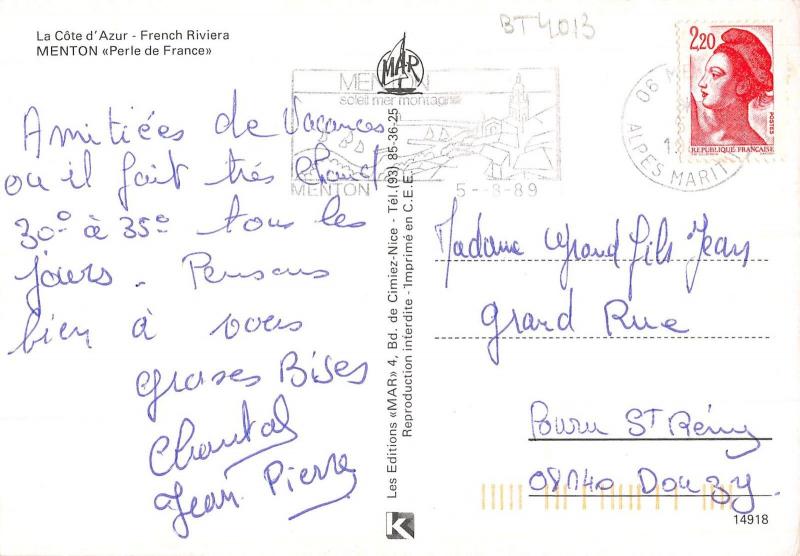 La Côte d'Azur - French Riviera
MENTON «Perle de France»
BT4013
MENTON
soleil mer montagne
MENTON
5-8-89
MAR
2,20
POSTES
REPUBLIQUE FRANÇAISE
06 M
ALPES MARIT
Amitiées de Vacances
ou il fait très Chaud
30° à 35° tous les
jours. Pensons
bien à vous
Grosses Bises
Chantal
Jean Pierre
Les Editions «MAR» 4, Bd. de Cimiez-Nice - Tél. (93) 85-36-25
Reproduction interdite - Imprimé en C.E.E.
Madame Grand fils Jean
Grand Rue
St Rémy
08140 Douzy.
K
14918